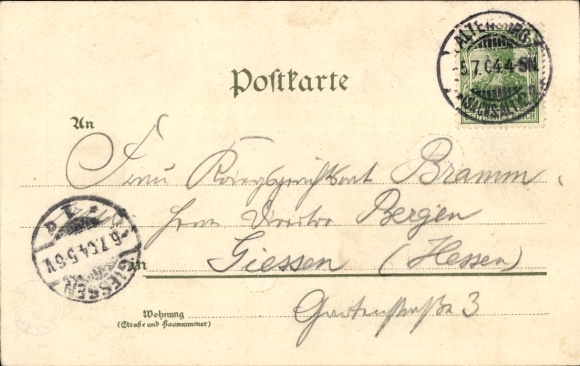 ALTENBURG
5.7.04.4-5N.
(SACHS.ALTB.)
Postkarte
An
Frau Kriegsgerichtsrat Bramm,
Herrn Bergen
in Giessen (Hessen)
Gartenstraße 3
Wohnung
(Straße und Hausnummer)
6.7.04.5-6V.
GIESSEN